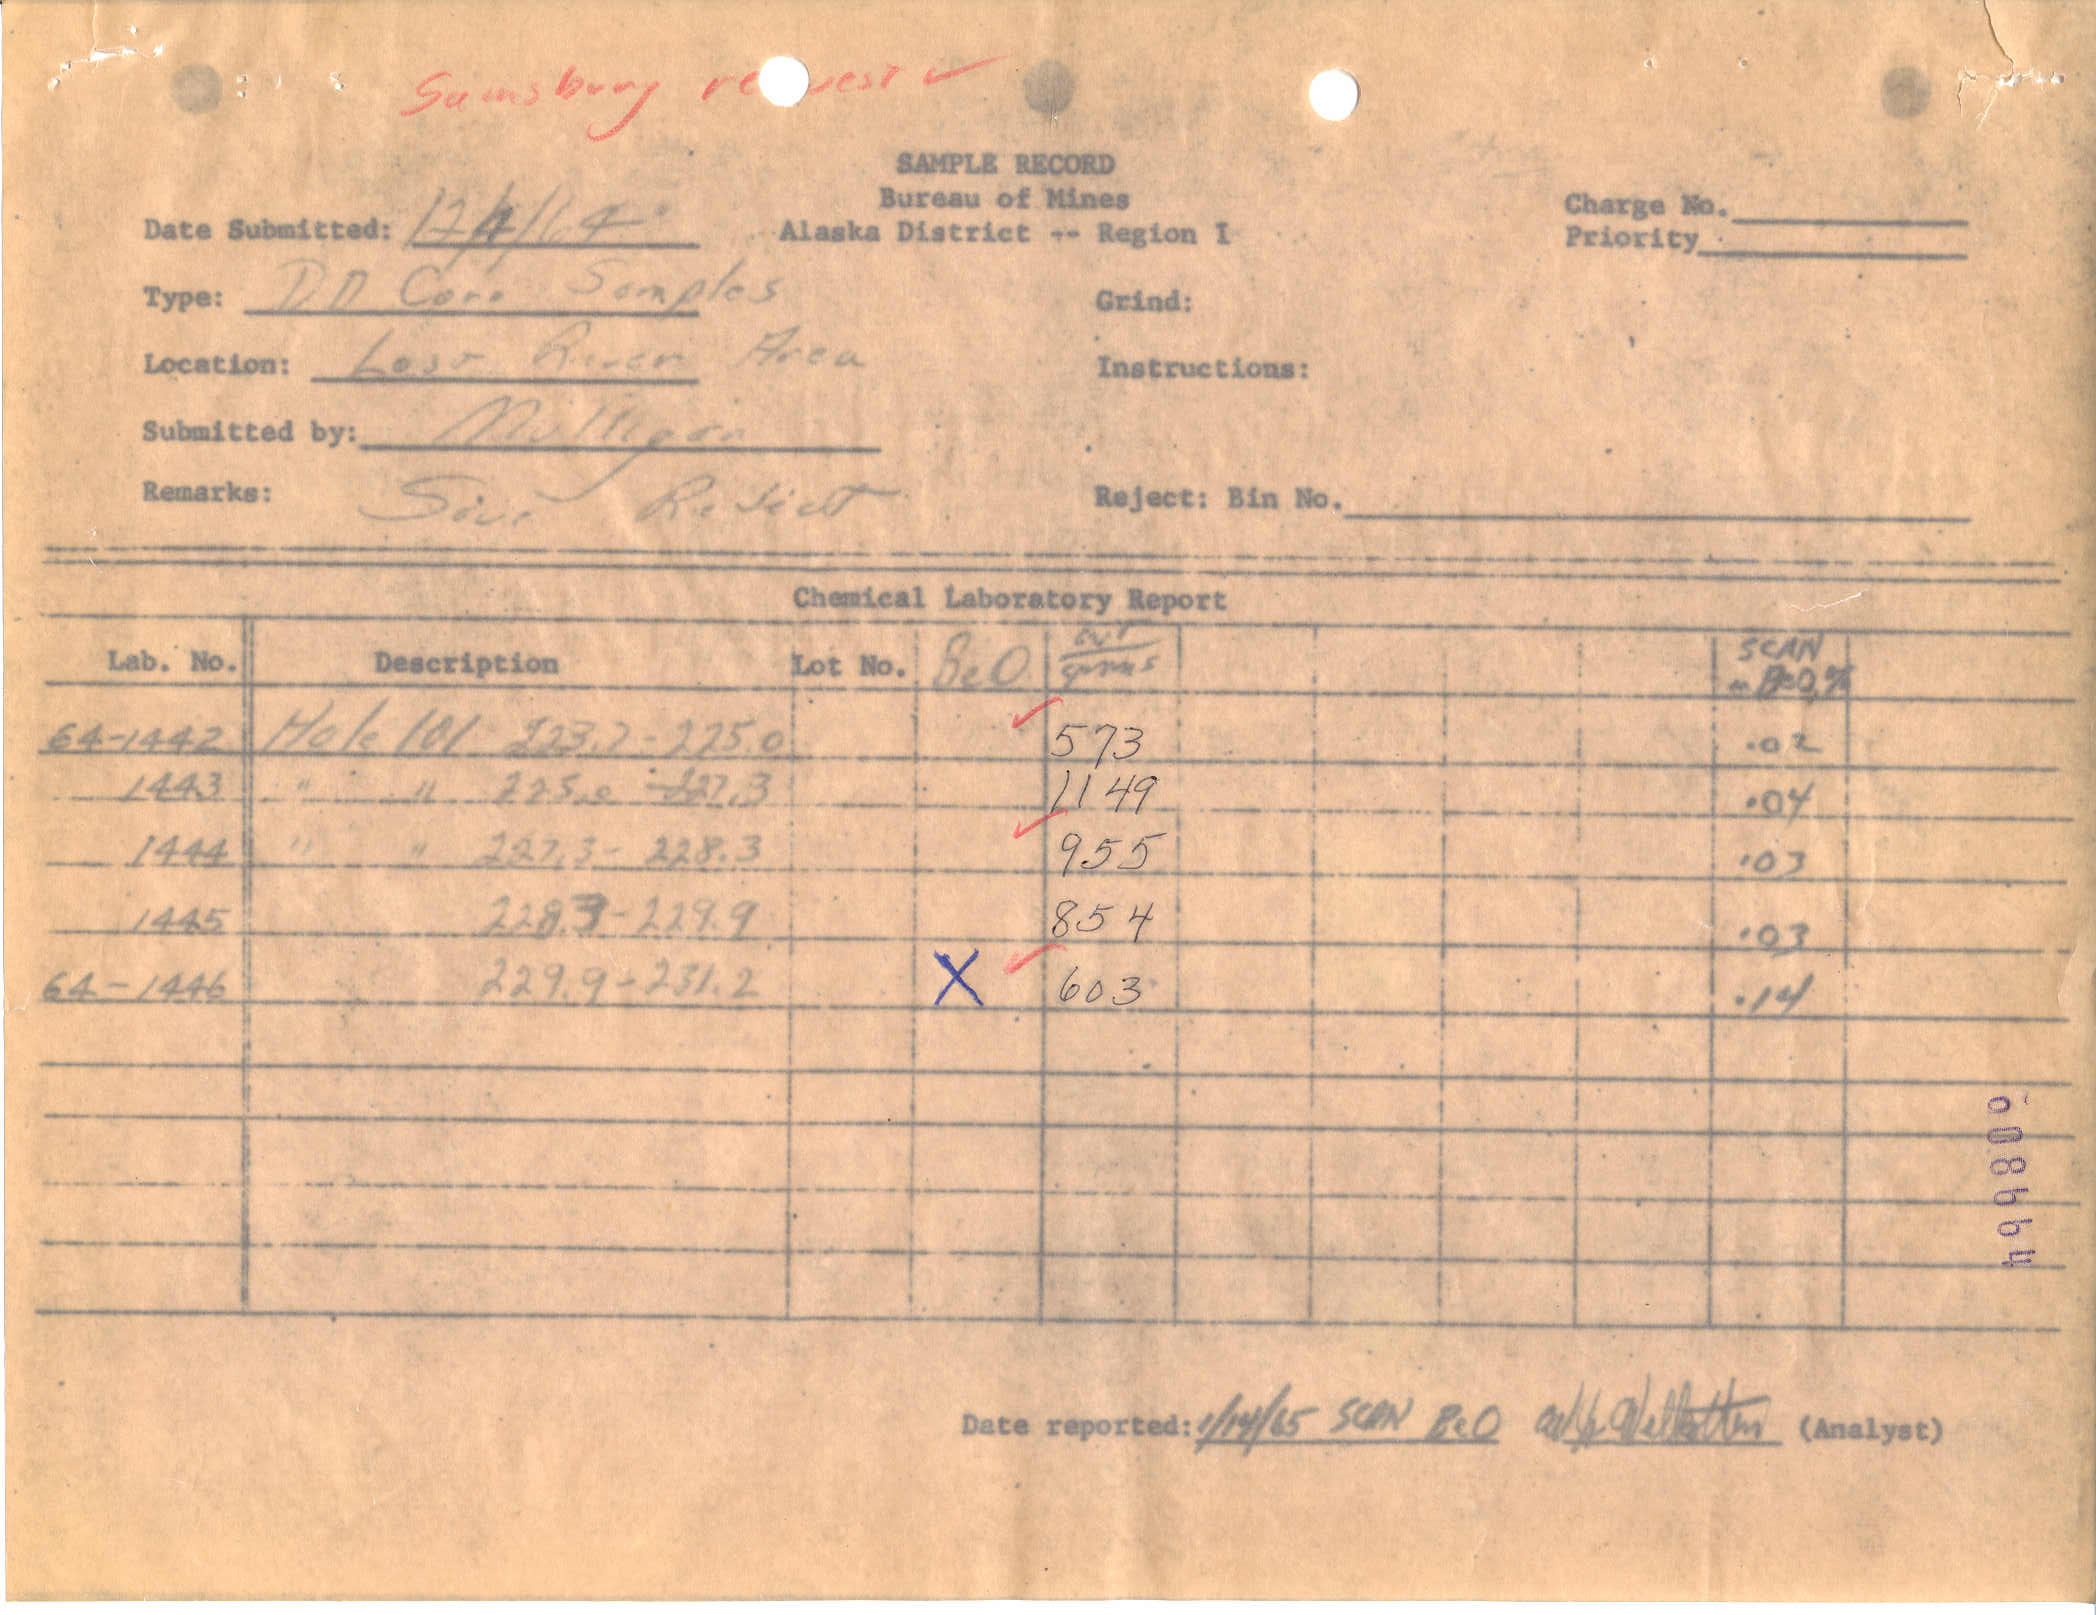 Sainsbury request ✓
SAMPLE RECORD
Bureau of Mines
Alaska District -- Region I
Charge No.
Priority
Date Submitted: 12/4/64
Type: DD Core Samples
Grind:
Location: Lost River Area
Instructions:
Submitted by: Mulligan
Remarks: Save Reject
Reject: Bin No.
Chemical Laboratory Report
Lab. No. Description Lot No. BeO wt grams SCAN BeO, %
64-1442 Hole 101 223.7-225.0 ✓ 573 .02
1443 " " 225.0-227.3 1149 .04
1444 " " 227.3-228.3 ✓ 955 .03
1445 228.3-229.9 854 .03
64-1446 229.9-231.2 X ✓ 603 .14
Date reported: 1/14/65 SCAN BeO (Analyst)